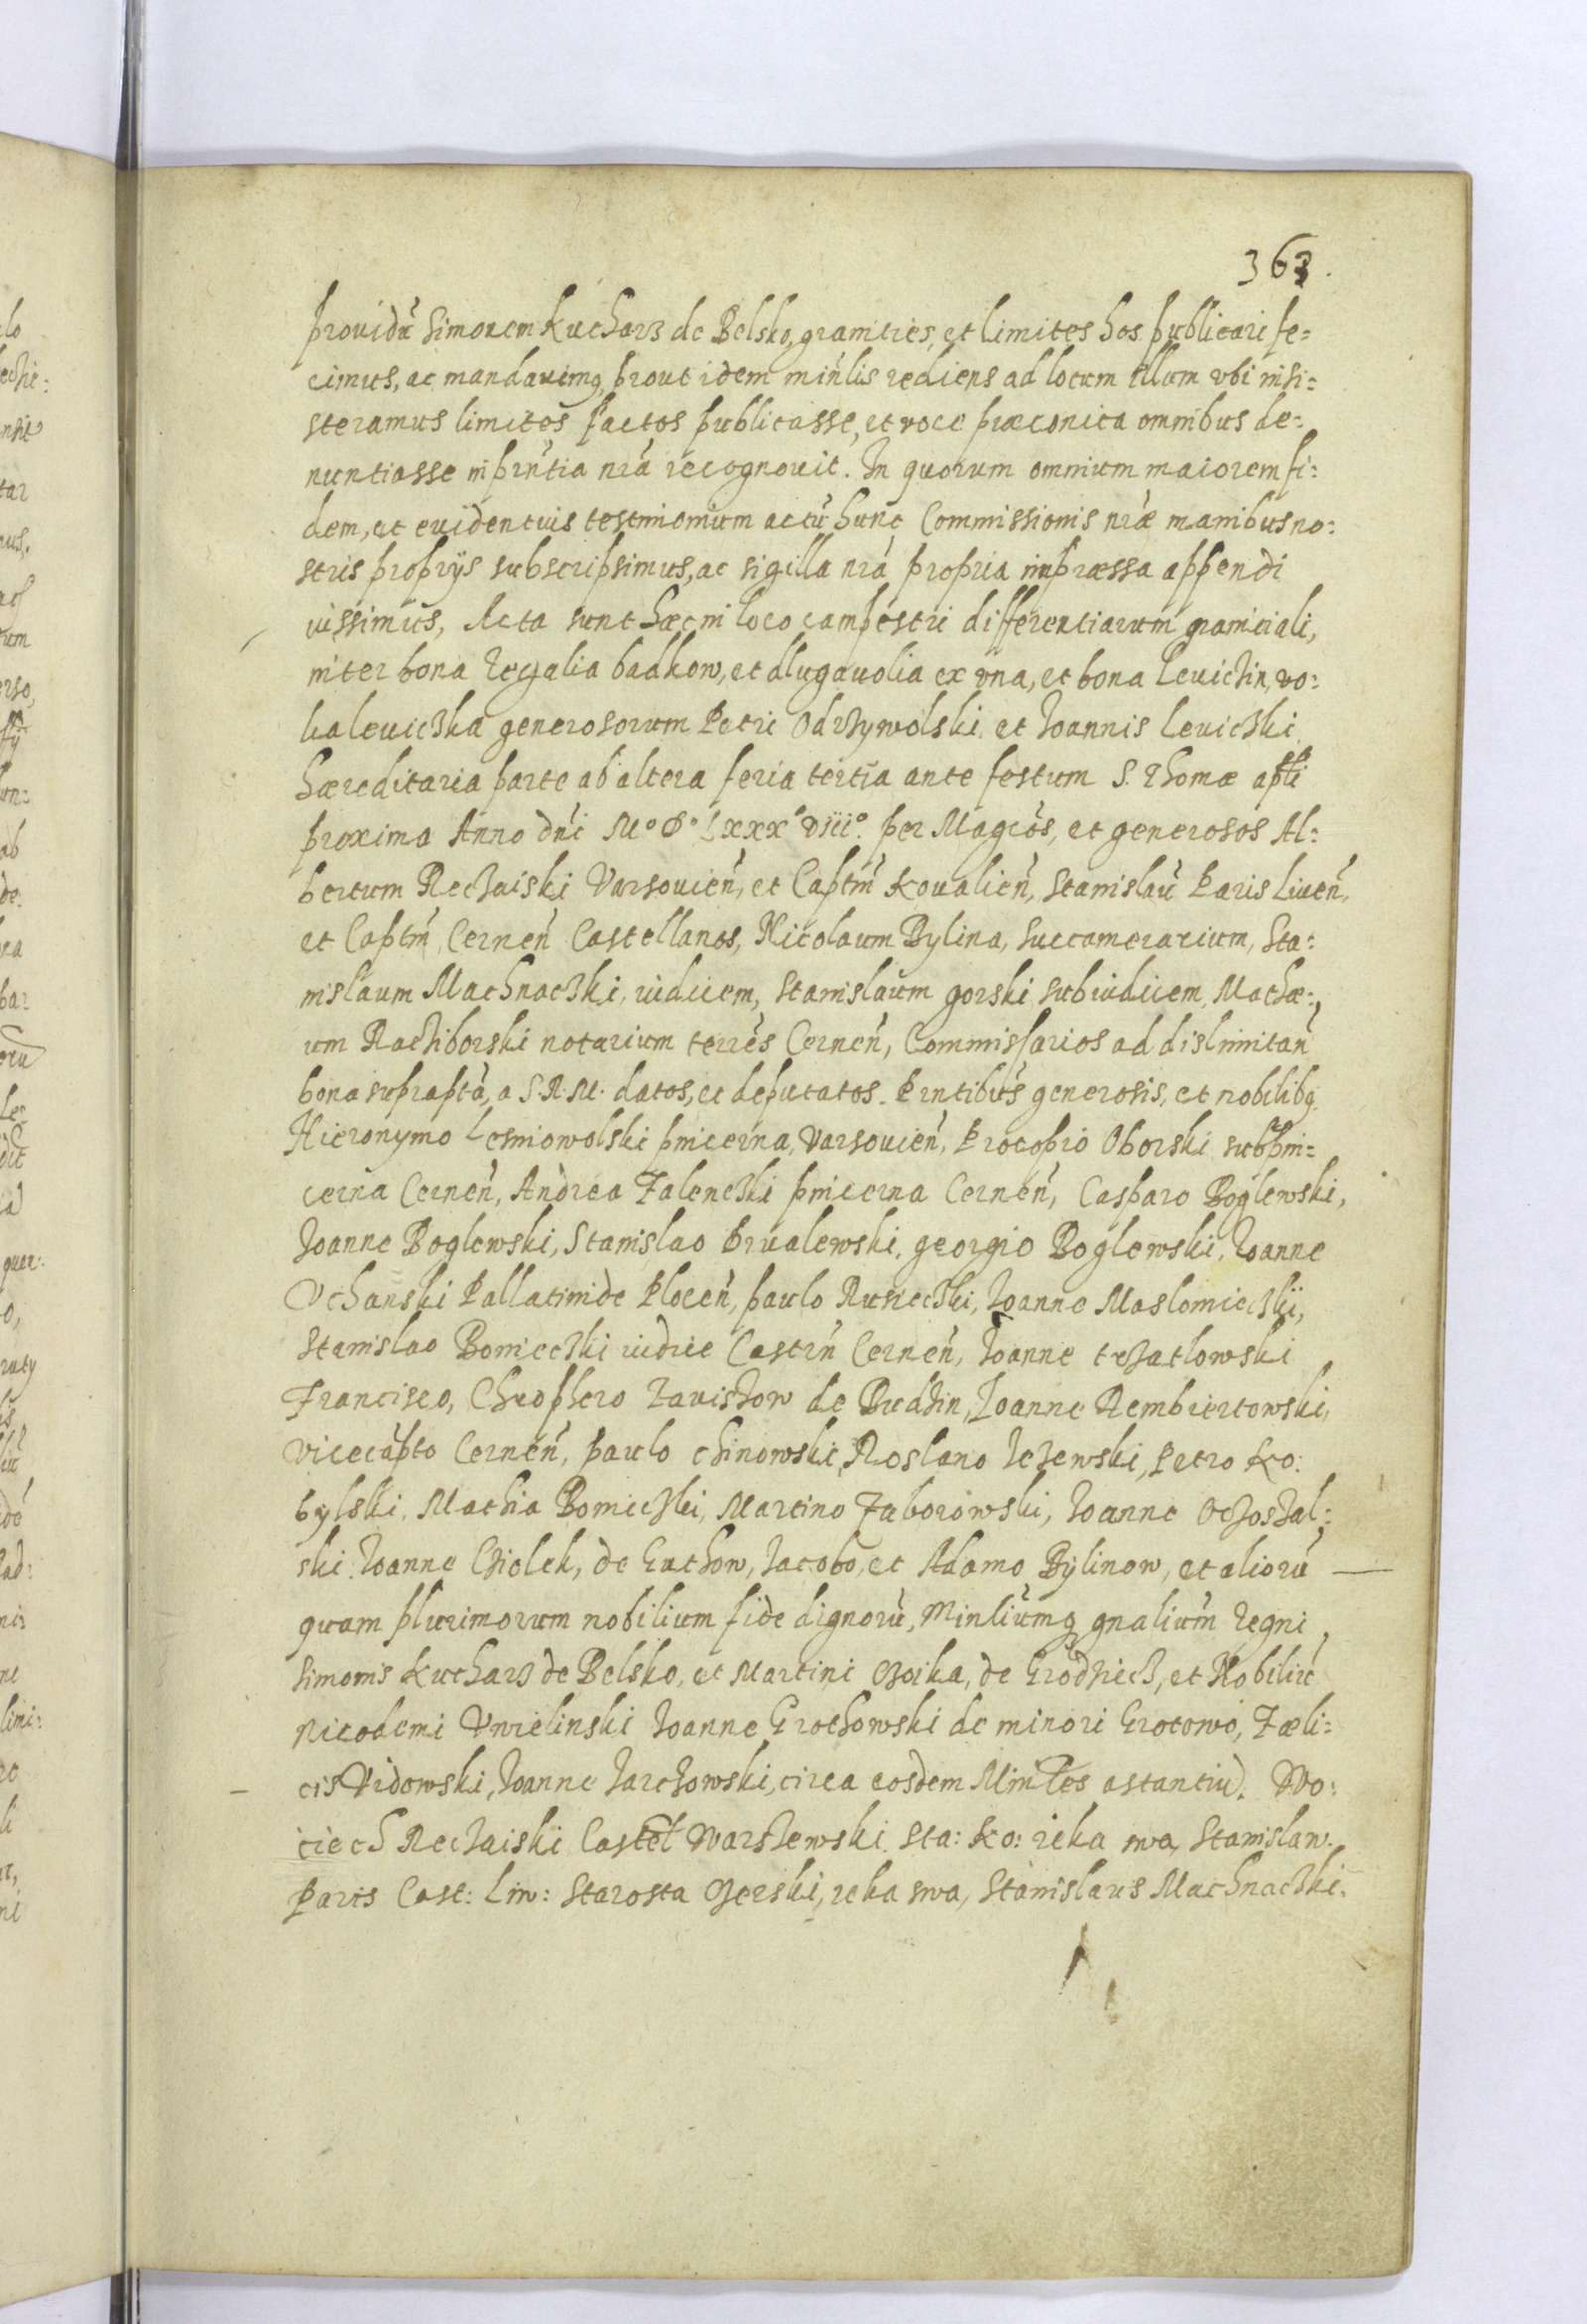 363.
prouidū Simonem Kucharz de Belsko, granities, et limites hos publicari fe=
cimus, ac mandauimq, prout idem minlis rediens ad locum illum vbi insi=
steramus limites factos publicasse, et voce præconica omnibus de=
nuntiasse in prntia nrā recognouit. In quorum omnium maiorem fi=
dem, et euidentius testimonium actū hunc Commissionis nræ manibus no=
stris proprijs subscripsimus, ac sigilla nrā propria impræssa appendi
iussimus, Acta sunt hæc in loco campestri differentiarum graniciali,
inter bona Regalia badkow, et dlugauolia ex vna, et bona Leuichin, vo=
lialeuiczka generosorum Petri Odrzywolski et Ioannis Leuiczki
hæreditaria parte ab altera feria tertia ante festum S. Thomæ apli
proxima Anno dni Mº Dº Lxxxº viiiº. per Magcos, et generosos Al=
bertum Reczaiski Varsouień, et Captm̃ Koualień, Stanislaū Paris Liueń,
et Captm̃ Cerneń Castellanos, Nicolaum Bylina, Succamerarium, Sta=
nislaum Machnaczki, iudicem, Stanislaum gorski subiudicem, Mathæ=
um Racziborski notarium terres Cerneń, Commissarios ad dislimitan
bona suprapta, a S.R.M. datos, et deputatos. Prntibus generosis, et nobilibq
Hieronymo Lesniowolski pincerna, Varsouień, Procopio Oborski subpin=
cerna Cerneń, Andrea Zalenczki pincerna Cerneń, Casparo Boglewski,
Ioanne Boglewski, Stanislao Brualewski, georgio Boglewski, Ioanne
Vchański Pallatinide Ploceń, paulo Rusieczki, Ioanne Maslomieczki,
Stanislao Bonieczki iudice Castrn̄ Cerneń, Ioanne trzatlowski
Francisco, Chrophero Zauiszow de Budzin, Ioanne Rembiertowski,
vicecapto Cerneń, paulo chinowski, Roslano Jezewski, Petro Ko=
bylski, Mathia Bonieczki, Martino Zaborowski, Ioanne Oczoszal=
ski Ioanne Cziolek, de Euchow, Iacobo, et Adamo Bylinow, et aliorū
quam plurimorum nobilium fide dignorū, Minliumq gnalium regni
Simonis Kucharz de Belsko, et Martini Czoika, de Grodzicz, et Nobiliū
Nicodemi Vnielinski Ioanne Grochowski de minori Grotowo, Fæli=
cis Vidowski, Ioanne Jarczowski, circa eosdem Minles astantiū. Wo=
iciech Reczaiski Castel Warszewski Sta: Ko: reka swa, Stanislaw
Paris Cast: Liw: Starosta Czerski, reka swa, Stanislaus Machnaczki.